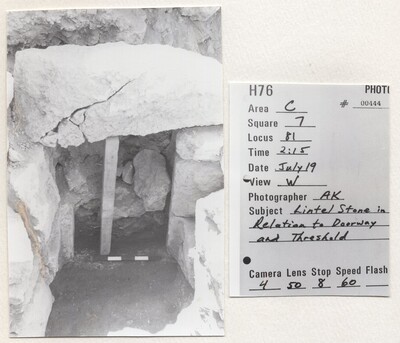 H76 PHOTO
Area C # 00444
Square 7
Locus 81
Time 2:15
Date July 19
View W
Photographer AK
Subject Lintel Stone in
Relation to Doorway
and Threshold
Camera Lens Stop Speed Flash
4 50 8 60